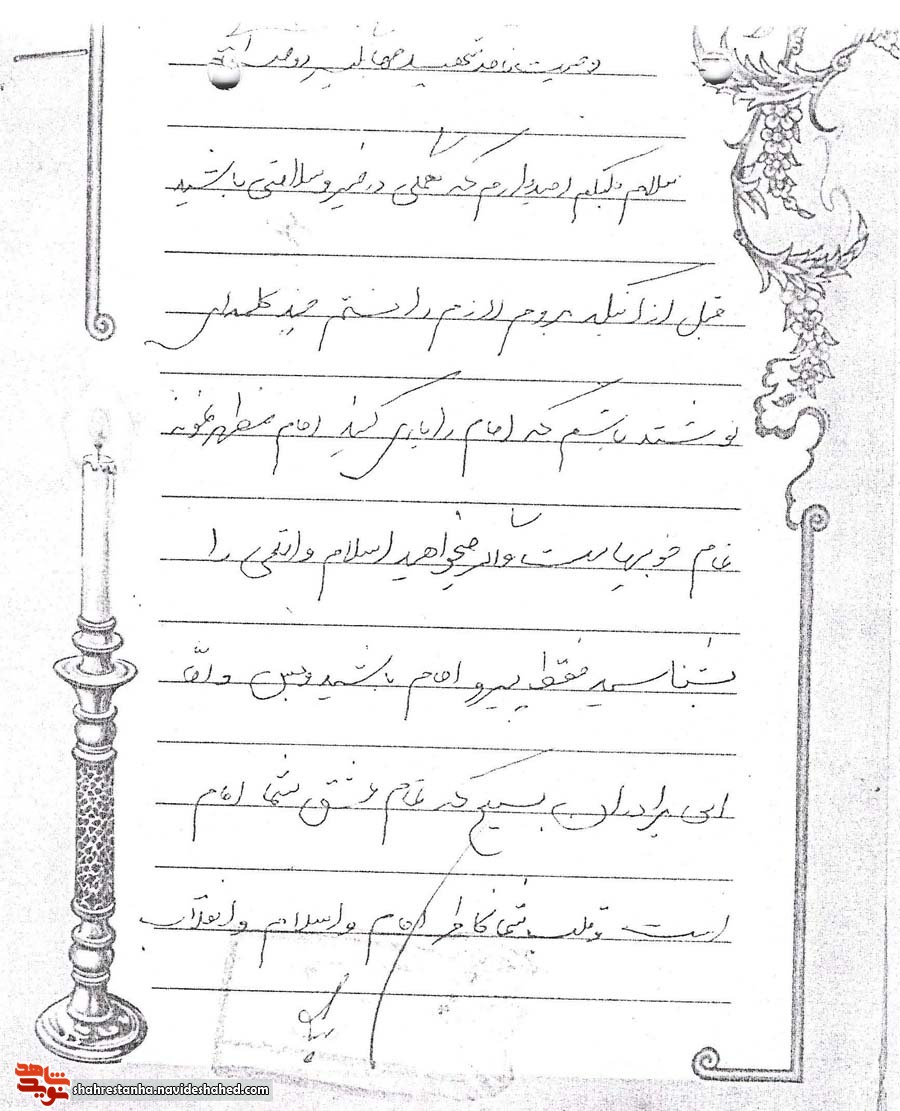 وصیت نامه شهید
سلام علیکم امیدوارم که همگی در خیر و سلامتی باشید
قبل از اینکه بروم لازم دانستم چند کلمه‌ای
نوشته باشم که امام را یاری کنید امام مظهر نمونه
تمام خوبیهاست و اگر میخواهید اسلام واقعی را
بشناسید فقط پیرو امام باشید و بس و اما
ای برادران بسیج که تمام عشق شما امام
است و قلب شما بخاطر امام و اسلام و انقلاب
شاهد
نوید
shahrestanha.navideshahed.com